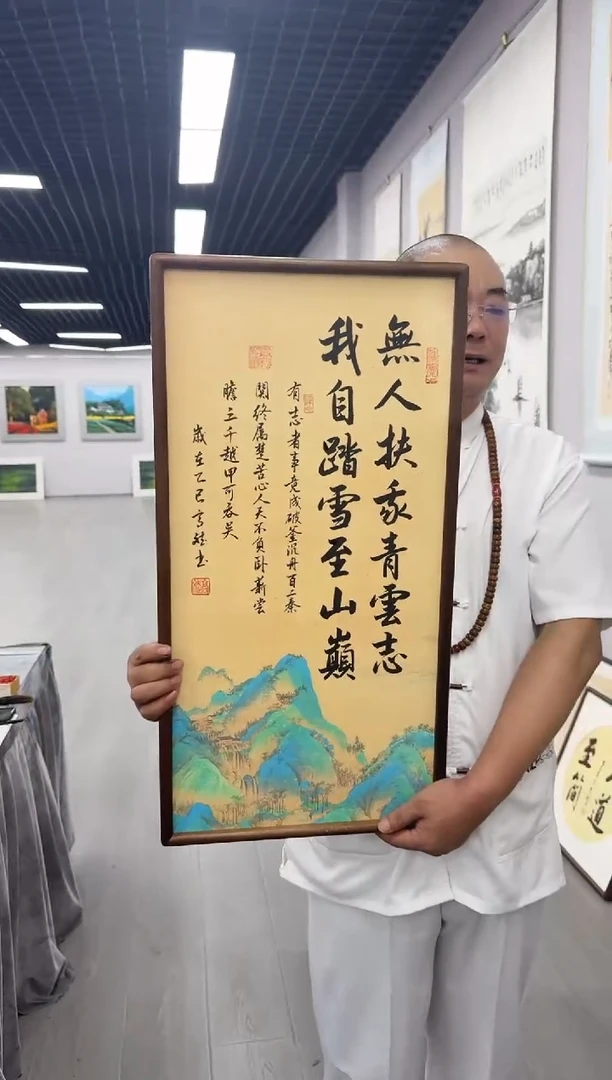 無人扶我青雲志
我自踏雪至山巔
有志者事竟成破釜沉舟百二秦
関终属楚苦心人天不負卧薪尝
膽三千越甲可吞吴
歲在乙巳书
道
至简